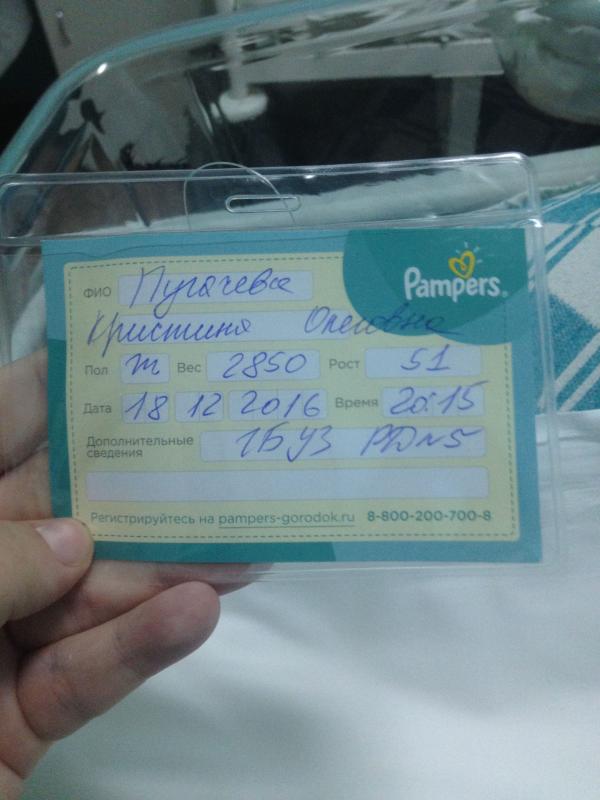 Pampers
ФИО Пугачева
Кристина Олеговна
Пол Ж Вес 2850 Рост 51
Дата 18 12 2016 Время 20:15
Дополнительные сведения ГБУЗ РД№5
Регистрируйтесь на pampers-gorodok.ru 8-800-200-700-8